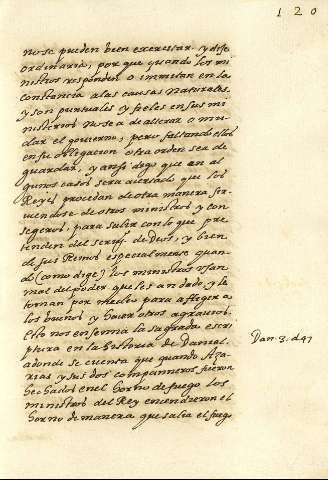 120
no se pueden bien exeressar. y dife
ordinaria, por que quando los mi
nistros responden o imitan en la
constancia a las causas naturales,
y son puntuales y fieles en sus mi
nisterios no se a de alterar o mu
dar el govierno, pero faltando ellos
en su obligacion otra orden sea de
guardar, y ansi digo que en al
gunos casos sera acertado que los
Reyes procedan de otra manera ser
viendose de otros ministros y con
segeros, para salir con lo que pre
tenden del servi.º de Dios, y bien
de sus Reinos especialmente quan
do (como dige) los ministros usan
mal del poder que les an dado, y le
toman por medio para afliger a
los buenos y hacer otros agravios.
Esto nos enseña la sagrada escri
ptura en la historia de Daniel.
adonde se cuenta que quando Aza
rias y sus dos compañeros fueron
hechados en el horno de fuego los
ministros del Rey encendieron el
horno de manera que salia el fuego
Dan 3. d 47